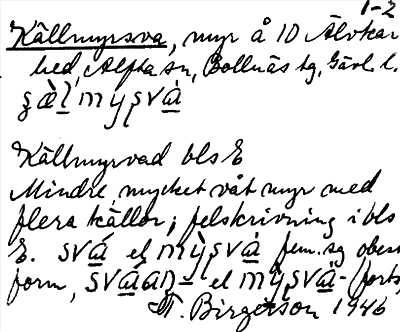 1-2
Källmyrsva, myr å 10 Älvkar
hed, Alfta sn, Bollnäs tg, Gävl. l.
Källmyrvad bls E
Mindre, mycket våt myr med
flera källor; felskrivning i bls
E. svá el mỳsvà fem. sg obest
form, el (forts,
T. Birgerson 1946